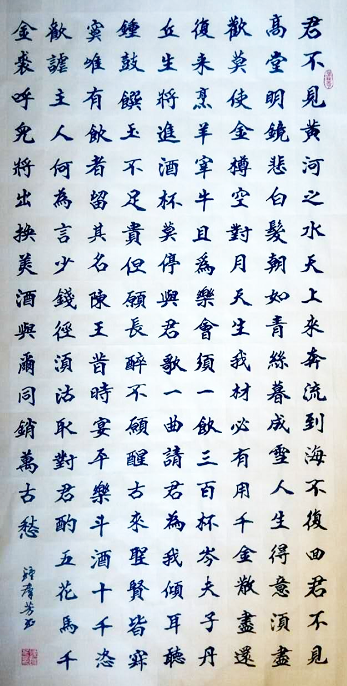 君不見黃河之水天上來奔流到海不復回君不見
高堂明鏡悲白髮朝如青絲暮成雪人生得意須盡
歡莫使金樽空對月天生我材必有用千金散盡還
復来烹羊宰牛且為樂會須一飲三百杯岑夫子丹
丘生將進酒杯莫停與君歌一曲請君為我傾耳聽
鍾鼓饌玉不足貴但願長醉不願醒古來聖賢皆寂
寞唯有飲者留其名陳王昔時宴平樂斗酒十千恣
歡謔主人何為言少錢徑須沽取對君酌五花馬千
金裘呼兒將出換美酒與爾同銷萬古愁